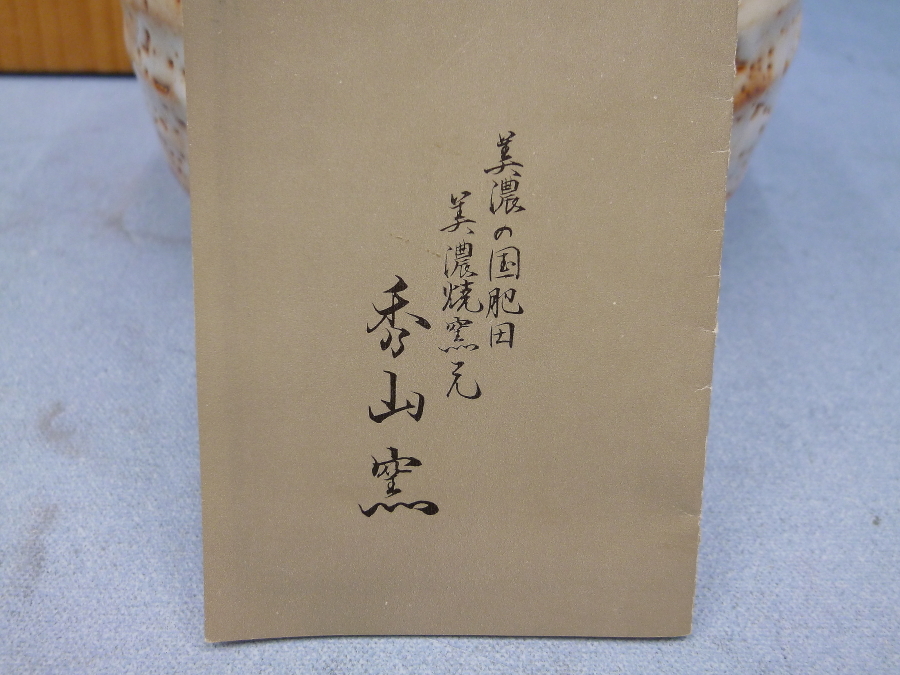 美濃の国肥田
美濃焼窯元
秀山窯